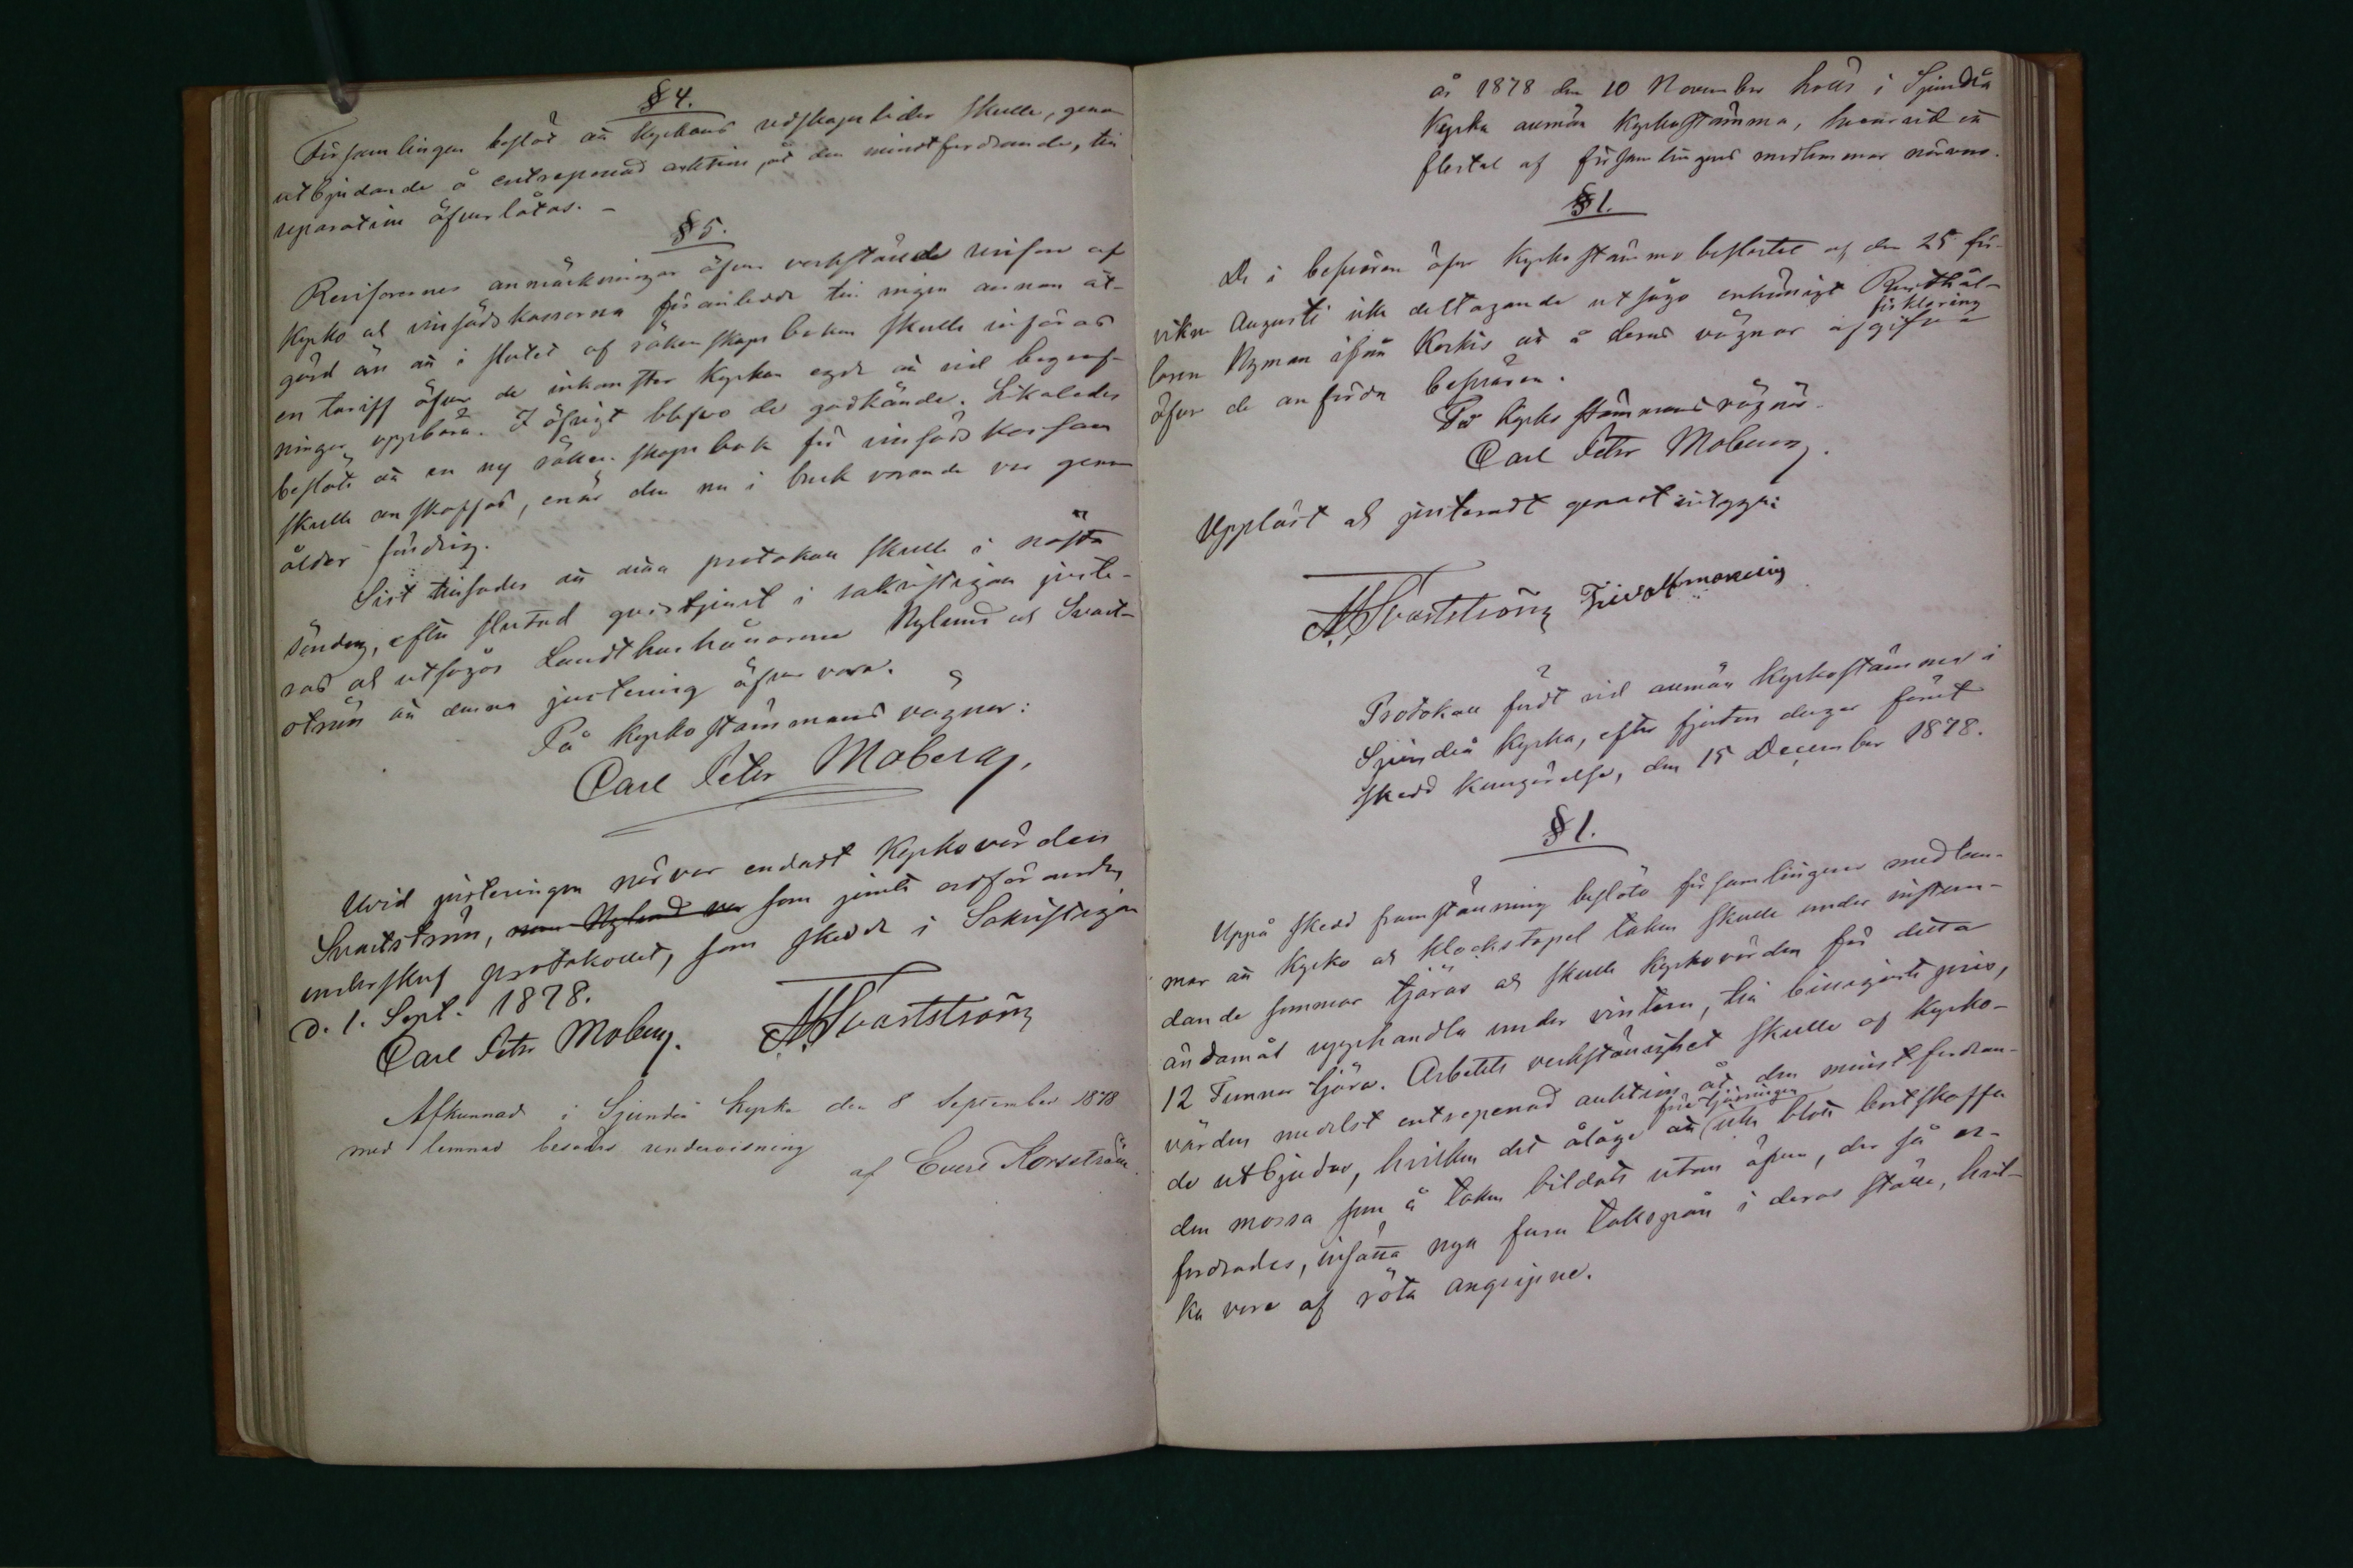 § 4.
Församlingen beslöt att Kyrkans redskapslider skulle, genom
utbjudande å entreprenad auktion, åt den minstfordrande, till
reparation öfverlåtas. –
§ 5.
Revisorernes anmärkningar öfver verkstälde revision af
Kyrko och vinfädskassorna föranledde till ingen annan åt-
gärd än att i slutet af räkenskaps boken skulle införas
en tariff öfver de inkomster Kyrkan egde att vid begraf-
ningar uppbära. I öfrigt blefvo de godkända. Likaledes
beslöts att en ny räkenskaps bok för vinsäds kassan
skulle anskaffas, enär den nu i bruk varande var genom
ålder färdig.
Sist tillsades att detta protokoll skulle i nästa
söndag, efter slutad gudstjenst i sakristigan juste-
ras och utsågos Landthushållarene Nylund och Svart-
ström att denna justering öfvervara.
På kyrkostämmans vägnar:
Carl Peter Moberg.
Wid justeringen närvar endast Kyrkovärden
Svartström, men Nylund var som jemte ordföranden
underskref protokollet, som skedde i Sakristigan
d. 1. Sept. 1878.
Carl Petr Moberg. A. Svartström
Afkunnad i Sjundeå kyrka den 8 September 1878
med lemnad besvärs undervisning
af Evert Korsström.
År 1878 den 10 November hölls i Sjundeå
Kyrka allmän Kyrkostämma, hvarvid ett
flertal af församlingens medlemmar närvoro.
§ 1.
De i besvären öfver Kyrkostämmobeslutet af den 25 för-
vikne Augusti icke deltagande utsågo enhälligt Rusthål-
laren Nyman ifrån Korkis att å deras vägnar afgifva förklaring
öfver de anförda besvären.
På Kyrkostämmans vägnar
Carl Peter Moberg.
Uppläst och justeradt genast intygga:
A. Svartström Fridolf
Protokoll fördt vid allmän Kyrkostämma i
Sjundeå Kyrka, efter fjorton dagar förut
skedd kungörelse, den 15 December 1878.
§ 1.
Uppå skedd framställning beslöto församlingens medlem-
mar att Kyrko och Klockstapel taken skulle under instun-
dande sommar tjäras och skulle Kyrkovärden för detta
ändamål upphandla under vintern, till billigaste pris,
12 Tunnor tjära. Arbetets verkställighet skulle af Kyrko-
värden medelst entreprenad auktion åt den minst fordran-
de utbjudas, hvilken det ålåge att före tjärningen icke blott bortskaffa
den mossa som å taken bildats utan äfven, der så er-
fordrades, insätta nya furu takspån i deras ställe, hvil-
ka vore af röta angripne.